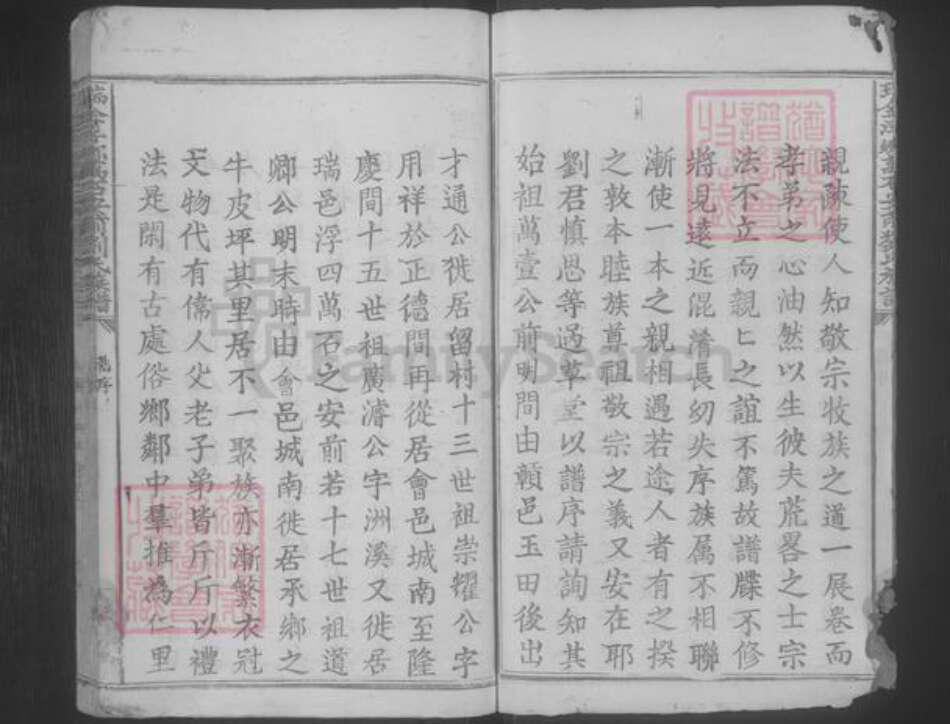 親踈使人知敬宗收族之道一展卷而
孝弟之心油然以生彼夫荒畧之士宗
法不立而親匕之誼不篤故譜牒不修
將見遠近混淆長幼失序族属不相聯
漸使一本之親相遇若途人者有之揆
之敦本睦族尊祖敬宗之義又安在耶
劉君慎思等過草堂以譜序請詢知其
始祖萬壹公前明間由贑邑玉田後出
才通公徙居留村十三世祖崇耀公字
用祥於正德間再從居會邑城南至隆
慶間十五世祖廣濬公字洲溪又徙居
瑞邑浮四萬石之安前若十七世祖道
卿公明末時由會邑城南徙居承鄉之
牛皮坪其里居不一聚族亦漸繁衣冠
文物代有儒人父老子弟皆斤斤以禮
法是閑有古處俗鄉鄰中羣推為仁里
FamilySearch